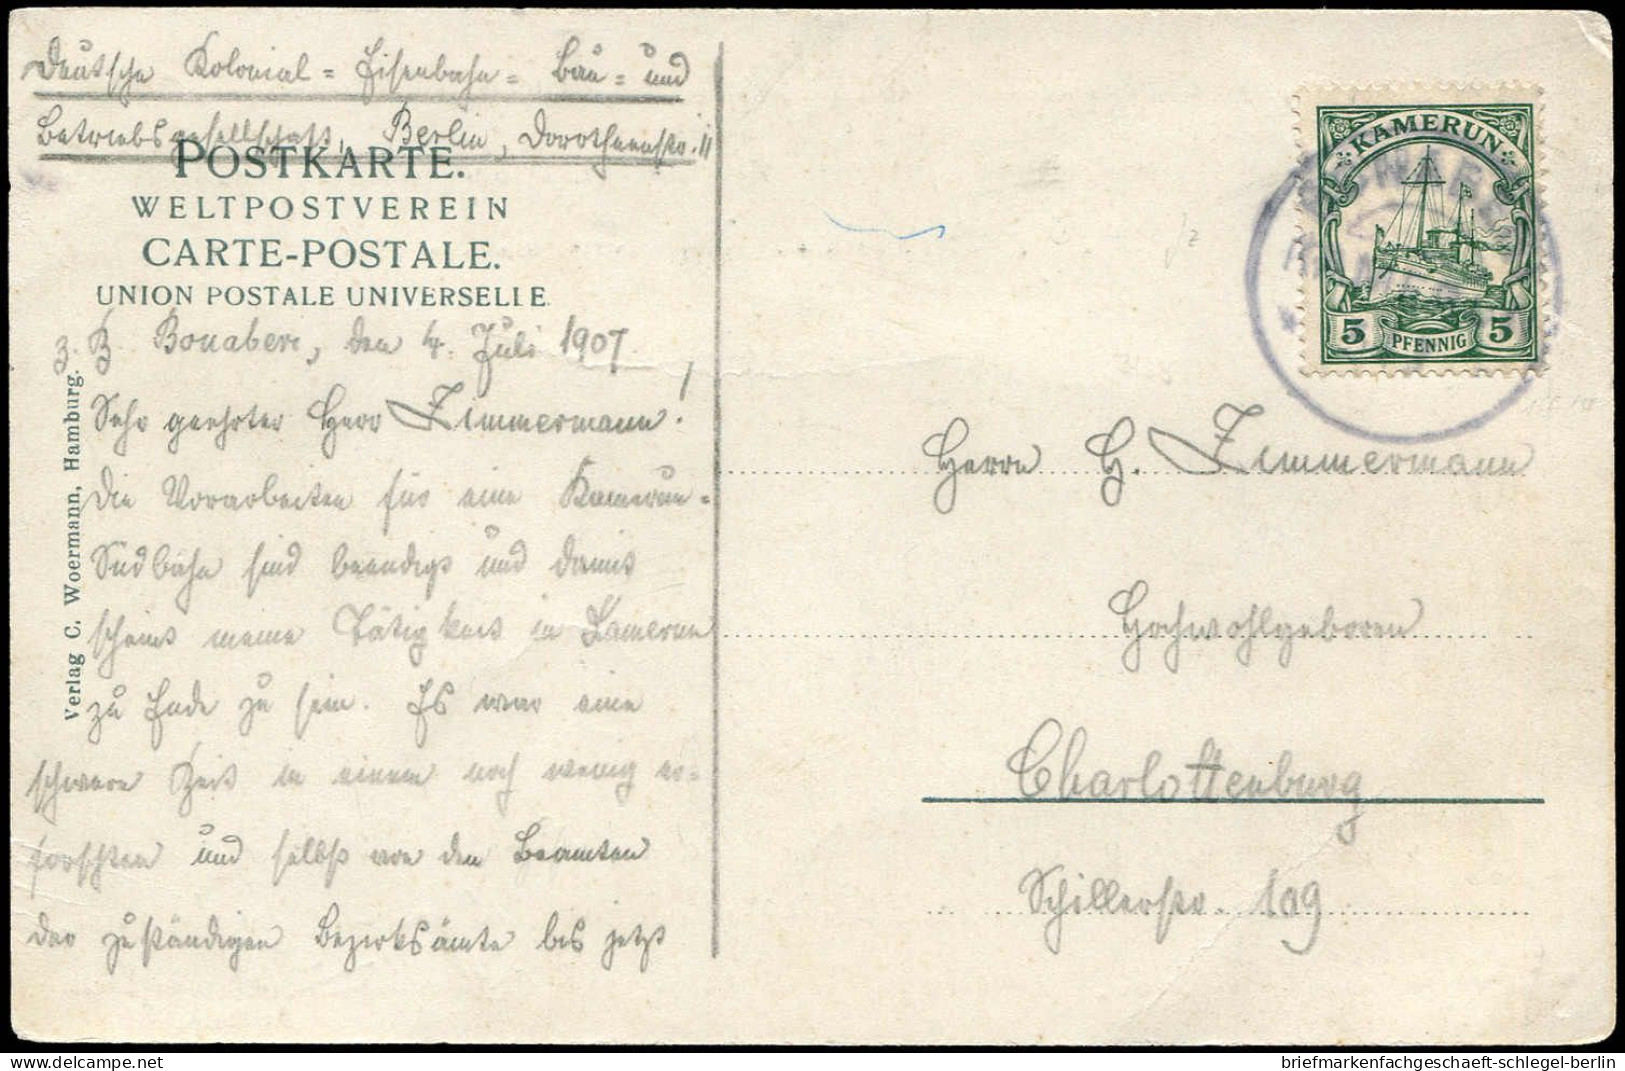 Deutsche Kolonial = Eisenbahn = Bau = und
Betriebsgesellschaft, Berlin, Dorotheenstr. 11
POSTKARTE.
WELTPOSTVEREIN
CARTE-POSTALE.
UNION POSTALE UNIVERSELLE.
z. Z. Bonaberi, den 4. Juli 1907.
Sehr geehrter Herr Zimmermann!
Die Vorarbeiten für eine Kamerun-
Südbahn sind beendigt und damit
scheint meine Tätigkeit in Kamerun
zu Ende zu sein. Es war eine
schwere Zeit in einem noch wenig er-
forschten und selbst von den Beamten
der zuständigen Bezirksämter bis jetzt
Verlag C. Woermann, Hamburg.
KAMERUN
5 PFENNIG 5
Herrn H. Zimmermann
Hochwohlgeboren
Charlottenburg
Schillerstr. 109
briefmarkenfachgeschaeft-schlegel-berlin